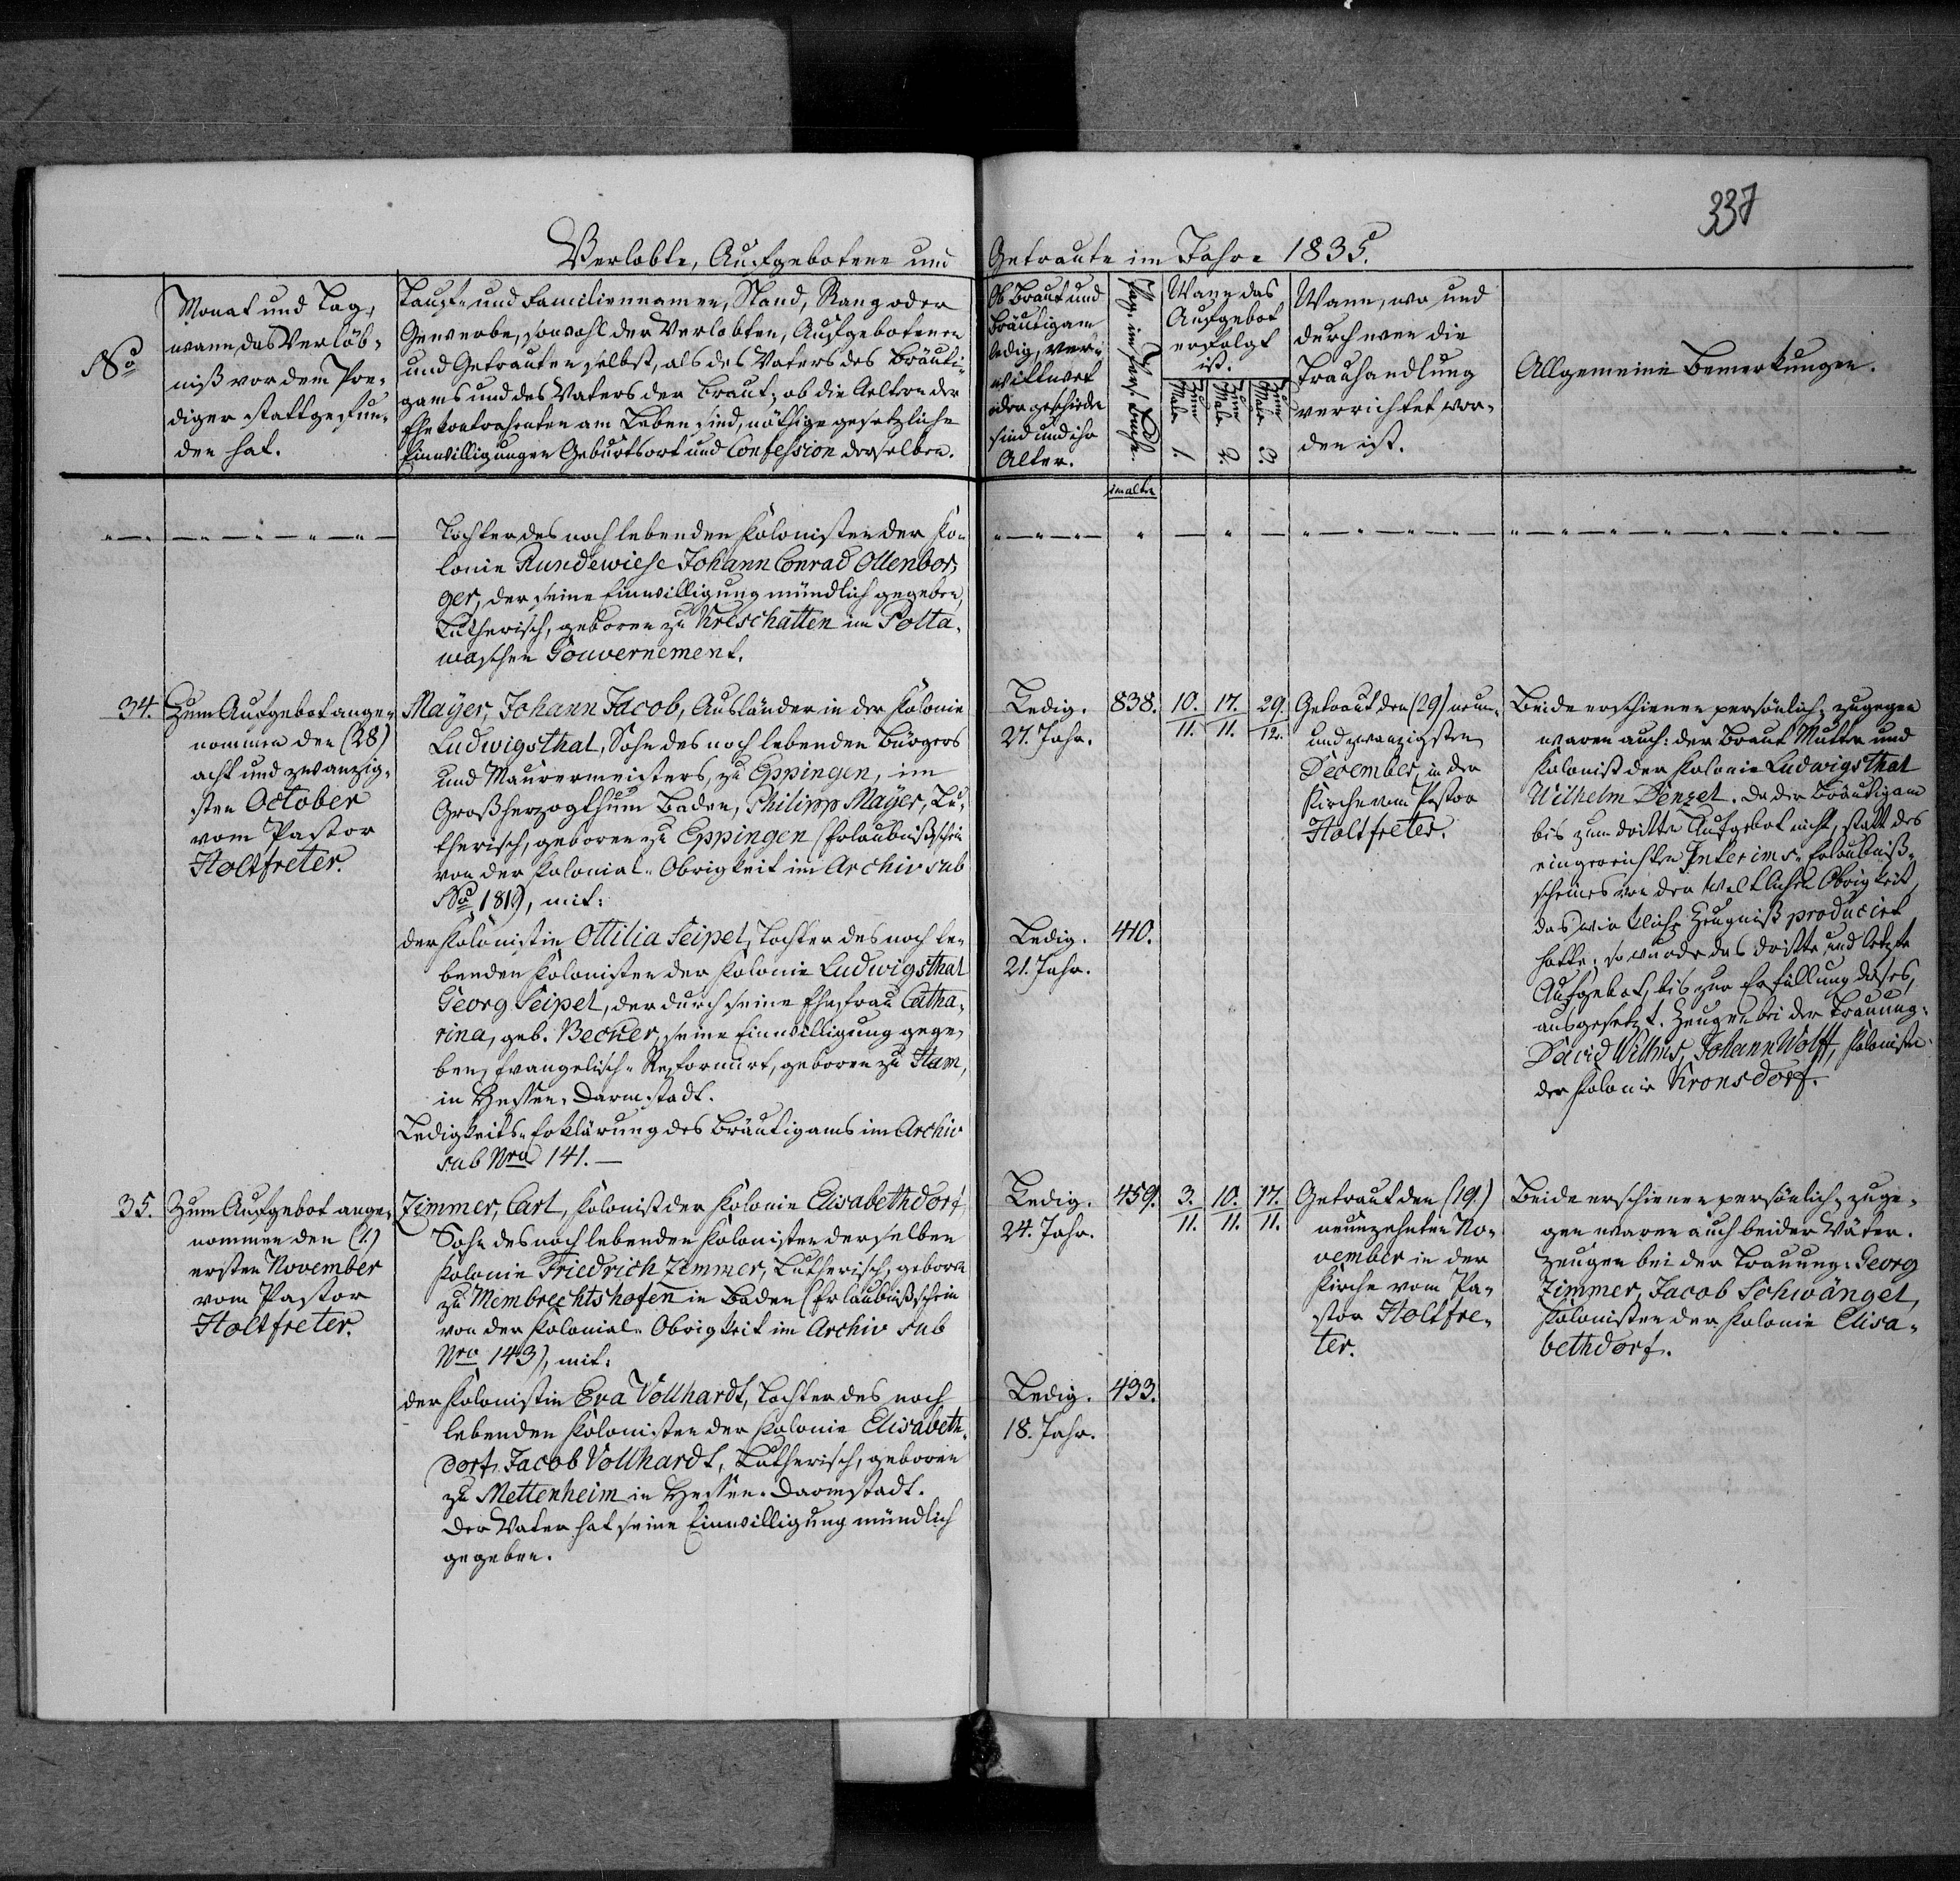 337
Verlobte, Aufgebotene und Getraute im Jahre 1835.
No
Monat und Tag,
wann das Verlöb-
niß vor dem Pre-
diger stattgefun-
den hat.
Tauf- und Familiennamen, Stand, Rang oder
Gewerbe, sowohl der Verlobten, Aufgebotenen
und Getrauten selbst, als des Vaters des Bräuti-
gams und des Vaters der Braut; ob die Aeltern der
Ehekontrahenten am Leben sind, nöthige gesetzliche
Einwilligungen Geburtsort und Confession derselben.
Ob Braut und
Bräutigam
ledig, ver-
wittwet
oder geschieden
sind und ihr
Alter.
Pag. im Pers. Buche.
Wann das
Aufgebot
erfolgt
ist.
Zum Male 1.
Zum Male 2.
Zum Male 3.
Wann, wo und
durch wen die
Trauhandlung
verrichtet wor-
den ist.
Allgemeine Bemerkungen.
im alten
Tochter des noch lebenden Kolonisten der Ko-
lonie Rundewiese Johann Conrad Ollenbor-
ger, der seine Einwilligung mündlich gegeben,
Lutherisch, geboren zu Kreschatten im Polta-
waschen Gouvernement.
34.
Zum Aufgebot ange-
nommen den (28)
acht und zwanzig-
sten October
vom Pastor
Holtfreter.
Mayer, Johann Jacob, Ausländer in der Kolonie
Ludwigsthal, Sohn des noch lebenden Bürgers
und Maurermeisters, zu Eppingen, im
Großherzogthum Baden, Philipp Mayer, Lu-
therisch, geboren zu Eppingen (Erlaubnißschein
von der Kolonial-Obrigkeit im Archiv sub
No 181), mit:
der Kolonistin Ottilia Seipel, Tochter des noch le-
benden Kolonisten der Kolonie Ludwigsthal
Georg Seipel, der durch seine Ehefrau Catha-
rina, geb. Becker, seine Einwilligung gege-
ben, Evangelisch-Reformirt, geboren zu Ilam,
in Hessen-Darmstadt.
Ledigkeits-Erklärung des Bräutigams im Archiv
sub Nro 141.—
Ledig. 838. 10. 17. 29.
27. Jahr. 11. 11. 12.
Ledig. 410.
21. Jahr.
Getraut den (29) neun-
und zwanzigsten
December, in der
Kirche vom Pastor
Holtfreter.
Beide erschienen persönlich, zugegen
waren auch: der Braut Mutter und
Kolonist der Kolonie Ludwigsthal
Wilhelm Denzel. Da der Bräutigam
bis zum dritten Aufgebot nicht, statt des
eingereichten Interims-Erlaubniß-
scheines von der Weltlichen Obrigkeit,
das wirkliche Zeugniß producirt
hatte; so wurde das dritte und letzte
Aufgebot, bis zur Erfüllung dieses,
ausgesetzt. Zeugen bei der Trauung:
David Willms, Johann Wolff, Kolonisten
der Kolonie Kronsdorf.
35.
Zum Aufgebot ange-
nommen den (1.)
ersten November
vom Pastor
Holtfreter.
Zimmer, Carl, Kolonist der Kolonie Elisabethdorf,
Sohn des noch lebenden Kolonisten derselben
Kolonie Friedrich Zimmer, Lutherisch, geboren
zu Membrechtshofen in Baden (Erlaubnißschein
von der Kolonial-Obrigkeit im Archiv sub
Nro 143), mit:
der Kolonistin Eva Vollhardt, Tochter des noch
lebenden Kolonisten der Kolonie Elisabeth-
dorf, Jacob Vollhardt, Lutherisch, geboren
zu Mettenheim in Hessen-Darmstadt.
Der Vater hat seine Einwilligung mündlich
gegeben.
Ledig. 459. 3. 10. 17.
24. Jahr. 11. 11. 11.
Ledig. 433.
18. Jahr.
Getraut den (19.)
neunzehnten No-
vember in der
Kirche vom Pa-
stor Holtfre-
ter.
Beide erschienen persönlich, zuge-
gen waren auch beider Väter.
Zeugen bei der Trauung: Georg
Zimmer, Jacob Schwängel,
Kolonisten der Kolonie Elisa-
bethdorf.